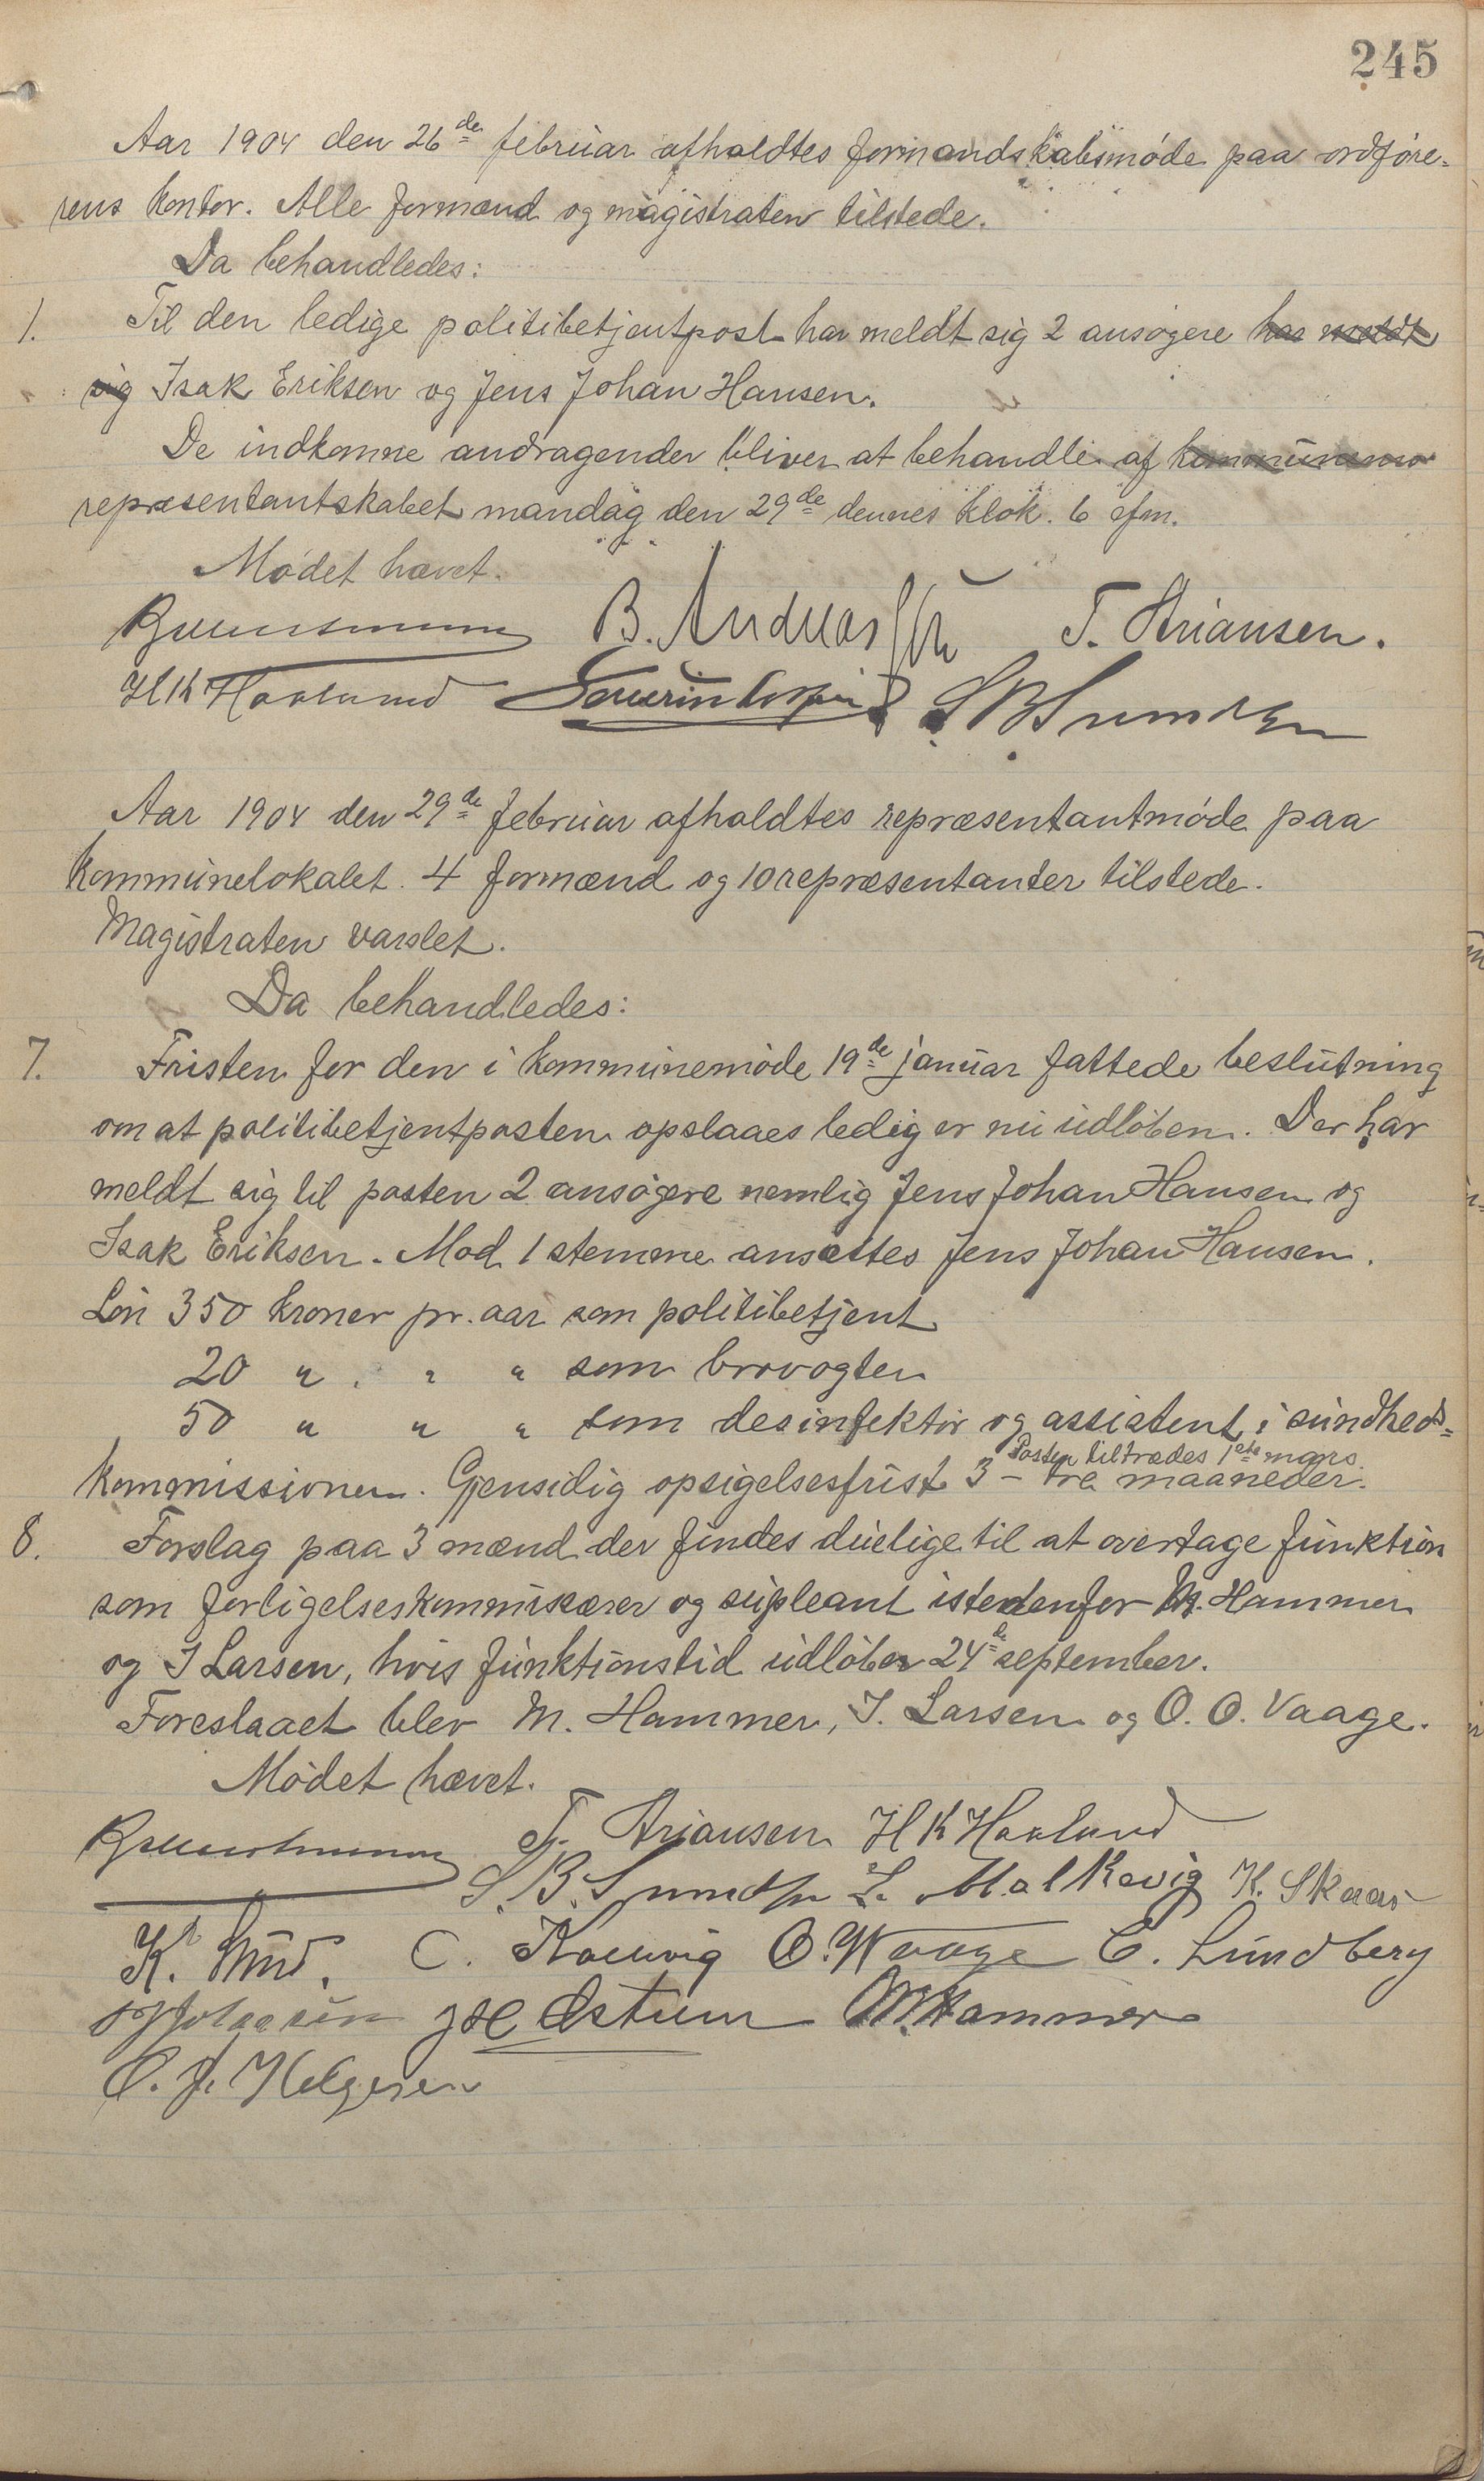 245
Aar 1904 den 26de februar afholdtes formandskabsmøde paa ordføre-
rens kontor. Alle formænd og magistraten tilstede.
Da behandledes:
1. Til den ledige politibetjentpost har meldt sig 2 ansøgere har meldt
sig Isak Eriksen og Jens Johan Hansen.
De indkomne andragender bliver at behandle af kommunens
repræsentantskabet mandag den 29de dennes klok. 6 efm.
Mødet hævet.
B. T. Ariansen.
H K Hovlund Severin S B
Aar 1904 den 29de februar afholdtes repræsentantmøde paa
kommunelokalet. 4 formænd og 10 repræsentanter tilstede.
Magistraten varslet.
Da behandledes:
7. Fristen for den i kommunemøde 19de januar fattede beslutning
om at politibetjentposten opslaaes ledig er nu udløben. Der har
meldt sig til posten 2 ansøgere nemlig Jens Johan Hansen og
Isak Eriksen. Mod 1 stemme ansættes Jens Johan Hansen.
Løn 350 kroner pr. aar som politibetjent
20 " " " som brovogter
50 " " " som desinfektør og assistent i sundheds-
Posten tiltrædes 1ste mars.
kommissionen. Gjensidig opsigelsesfrist 3 – tre maaneder.
8. Forslag paa 3 mænd der findes duelige til at overtage funktion
som forligelseskommisærer og supleant istedenfor M. Hammer
og I Larsen, hvis funktionstid udløber 24de september.
Foreslaaet blev M. Hammer, I. Larsen og O. O. Vaage.
Mødet hævet.
T. Ariansen H K Hovlund
S. B. L. Malkevig K. Skaar
K. C. O. Waage C. Lundberg
Østrem M. Hammer
O. J. Helgesen